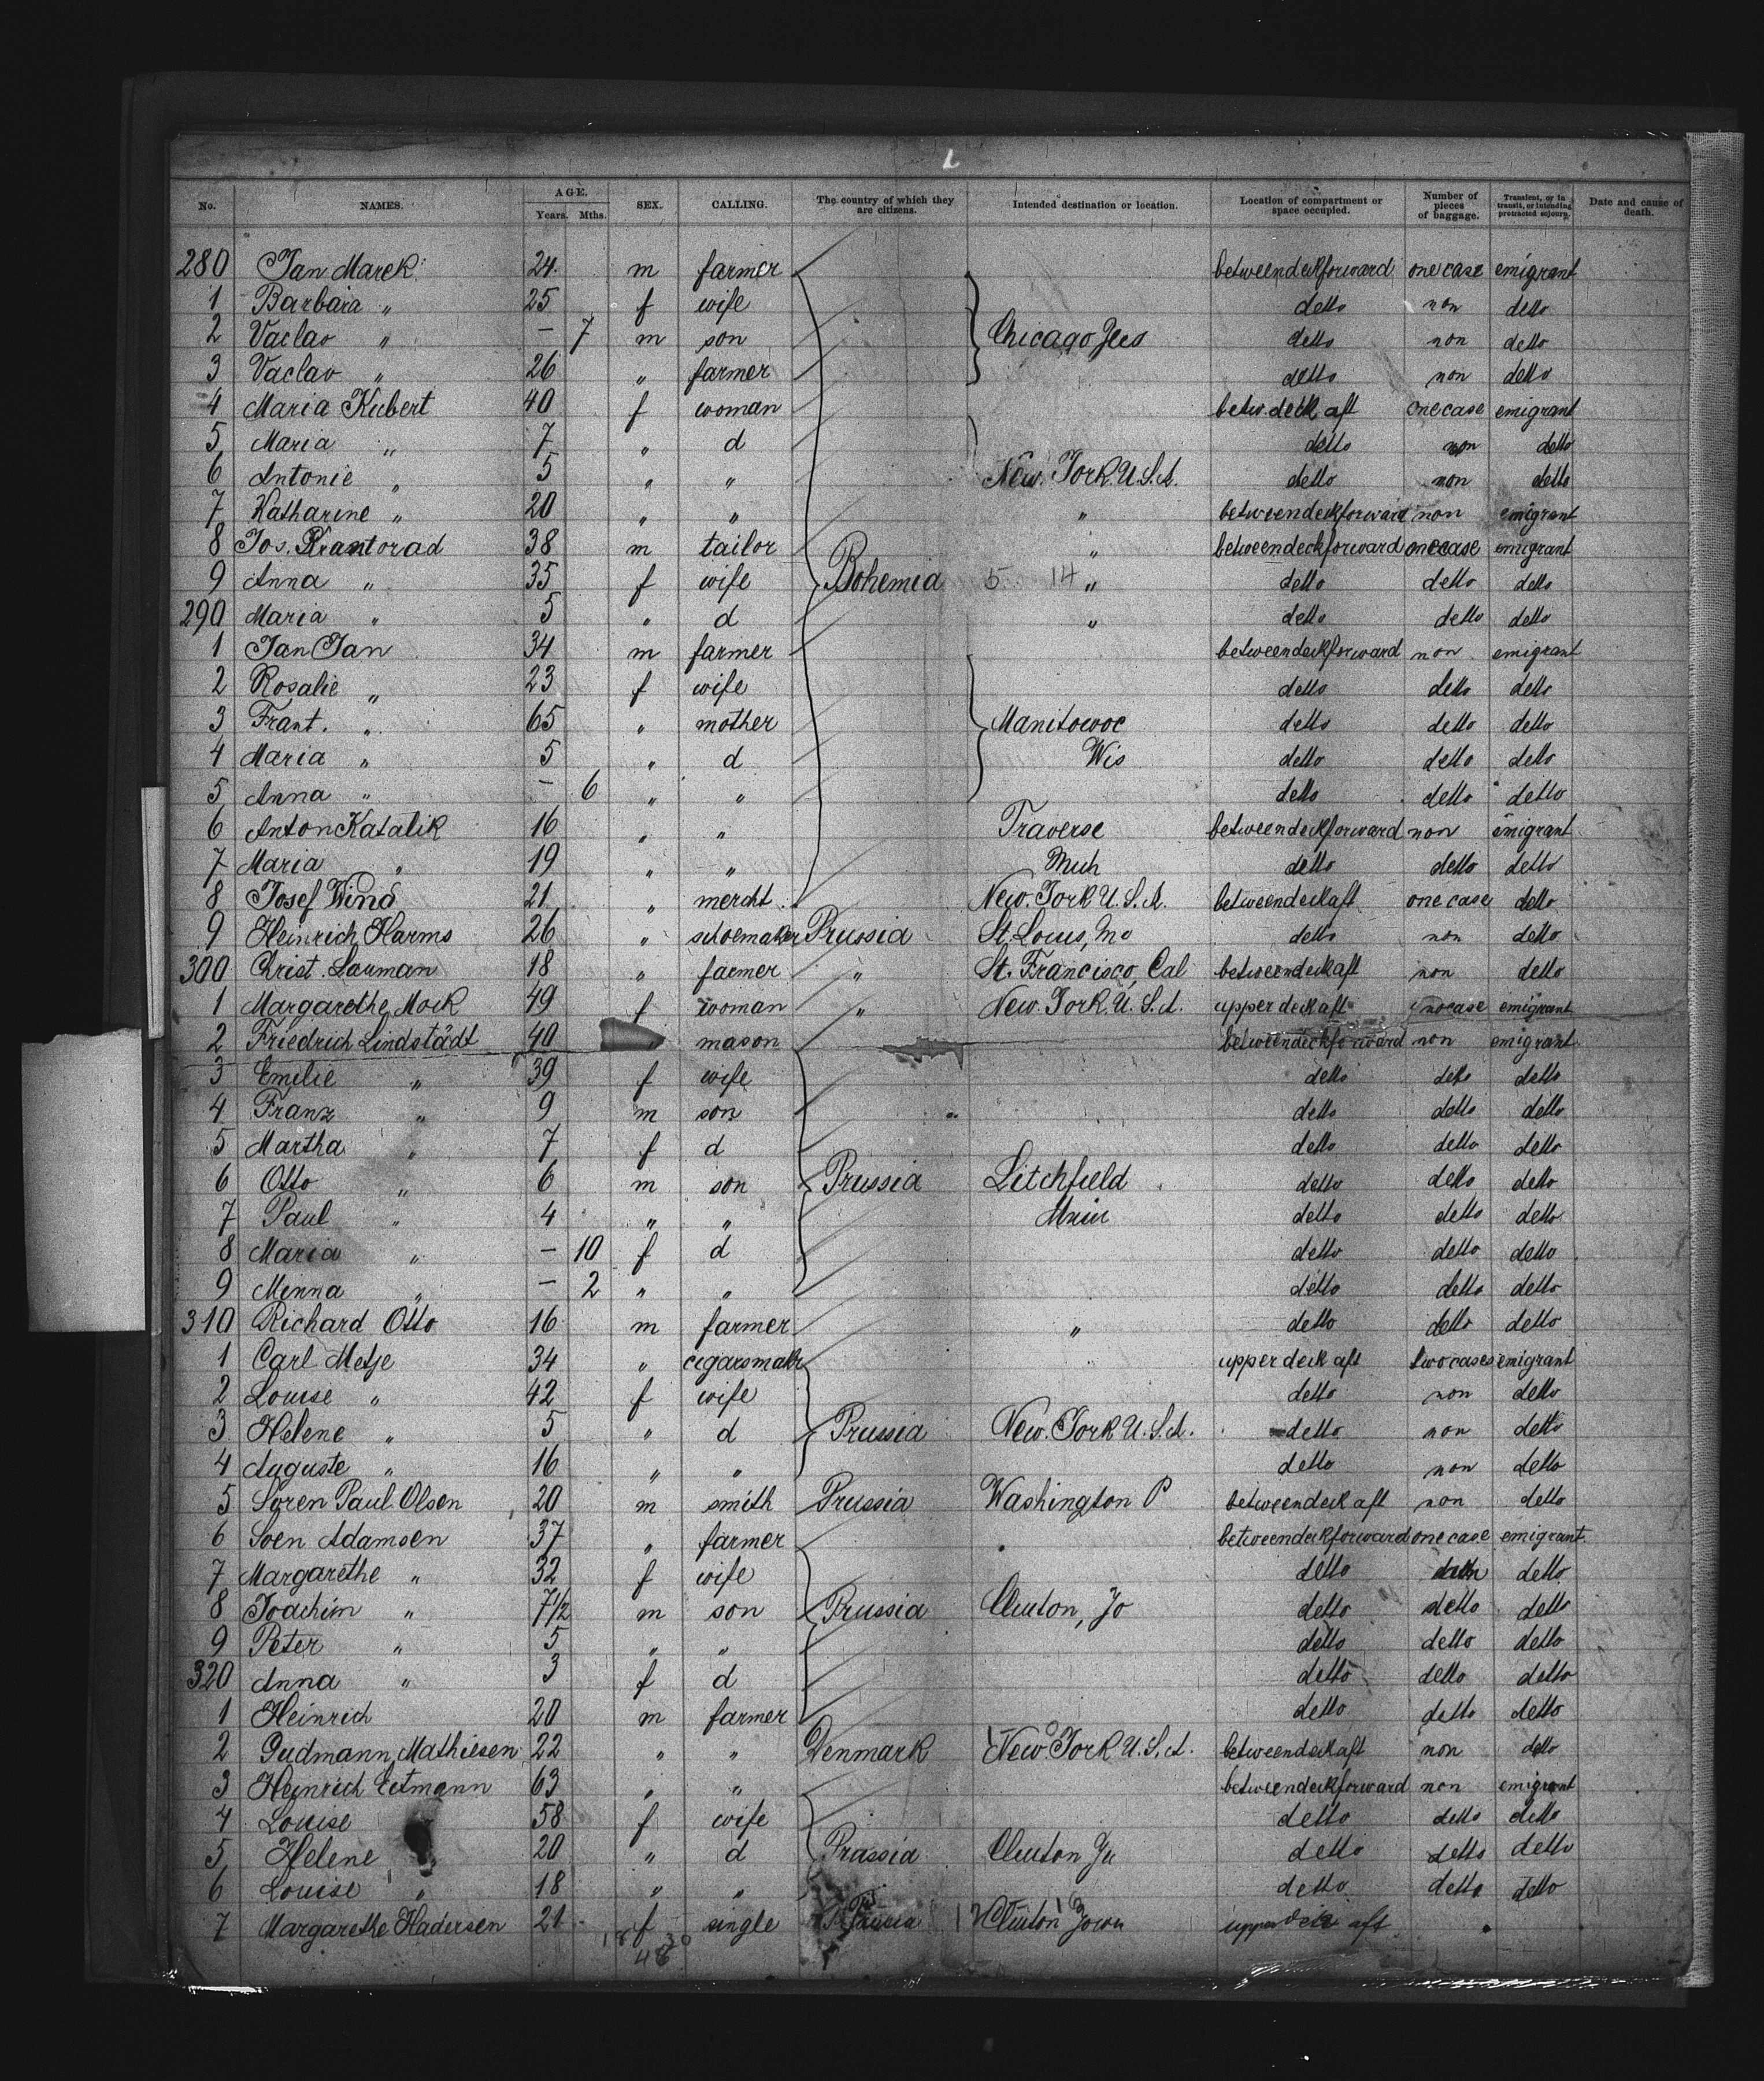 No. NAMES. AGE. Years. Mths. SEX. CALLING. The country of which they are citizens. Intended destination or location. Location of compartment or space occupied. Number of pieces of baggage. Transient, or in transit, or intending protracted sojourn. Date and cause of death.
280 Jan Marek 24 m farmer betweendeckforward one case emigrant
1 Barbara " 25 f wife detto non detto
2 Vaclav " — 7 m son Chicago Jlls detto non detto
3 Vaclav " 26 " farmer detto non detto
4 Maria Kubert 40 f woman betw. deck aft one case emigrant
5 Maria " 7 " d detto non detto
6 Antonie " 5 " " New. York. U. S. A. detto non detto
7 Katharine " 20 " " " betweendeckforward non emigrant
8 Jos. 38 m tailor " betweendeckforward onecase emigrant
9 Anna " 35 f wife Bohemia 5 14 " detto detto detto
290 Maria " 5 " d " detto detto detto
1 Jan Jan 34 m farmer betweendeckforward non emigrant
2 Rosalie " 23 f wife detto detto detto
3 Frant. " 65 " mother Manitowoc detto detto detto
4 Maria " 5 " d Wis detto detto detto
5 Anna " — 6 " " detto detto detto
6 Anton Katalik 16 " " Traverse betweendeckforward non emigrant
7 Maria " 19 " " detto detto detto
8 Josef Wind 21 " mercht. New. York U. S. A. betweendeckaft one case detto
9 Heinrich Harms 26 " schoemaker Prussia St. Louis, Mo detto non detto
300 Christ. Lauman 18 " farmer " St. Francisco, Cal betweendeckaft non detto
1 Margarethe Mock 49 f woman " New. York. U. S. A. upper deck aft emigrant
2 Friedrich Lindstädt 40 mason betweendeckforward non emigrant
3 Emilie " 39 f wife detto detto detto
4 Franz " 9 m son detto detto detto
5 Martha " 7 f d detto detto detto
6 Otto " 6 m son Prussia Litchfield detto detto detto
7 Paul " 4 " " detto detto detto
8 Maria " — 10 f d detto detto detto
9 Minna " — 2 " " detto detto detto
310 Richard Otto 16 m farmer " detto detto detto
1 Carl Metje 34 " cigarsmakr upper deck aft two cases emigrant
2 Louise " 42 f wife detto non detto
3 Helene " 5 " d Prussia New. York U. S. A. detto non detto
4 Auguste " 16 " " detto non detto
5 Sören Paul Olsen 20 m smith Prussia Washington P betweendeck aft non detto
6 Soen Adamsen 37 " farmer betweendeckforward one case emigrant
7 Margarethe " 32 f wife detto detto
8 Joachim " 7 1/2 m son Prussia Clinton, Jo detto detto detto
9 Peter " 5 " " detto detto detto
320 Anna " 3 f d detto detto detto
1 Heinrich 20 m farmer detto detto detto
2 Gudmann Mathiesen 22 " " Denmark New York U. S. A. betweendeckaft non detto
3 Heinrich Eitmann 63 " " betweendeckforward non emigrant
4 Louise 58 f wife detto detto detto
5 Helene " 20 " d Prussia Clinton detto detto detto
6 Louise " 18 " " detto detto detto
7 Margarethe Hadersen 21 f single Clinton Jowa upper deck aft
18 30
48